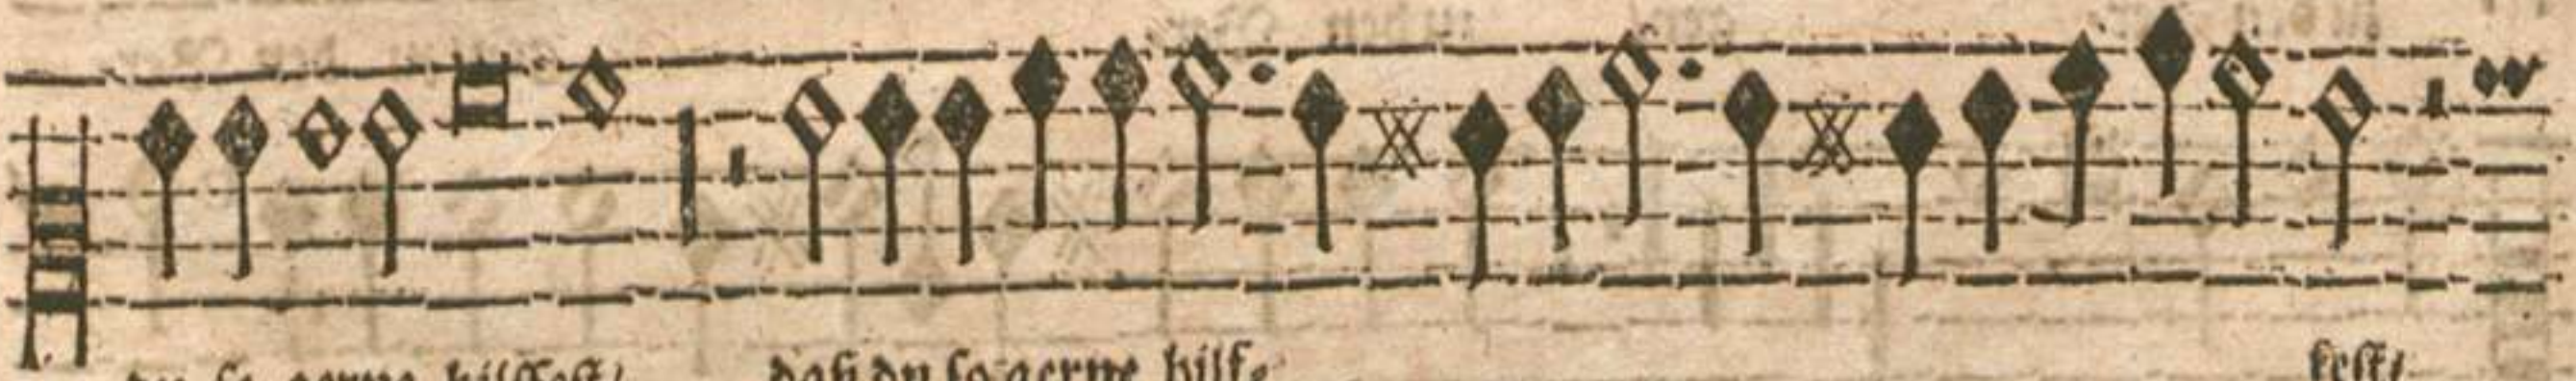 du so gerne hilffest/ daß du so gerne hilf⸗ fest/